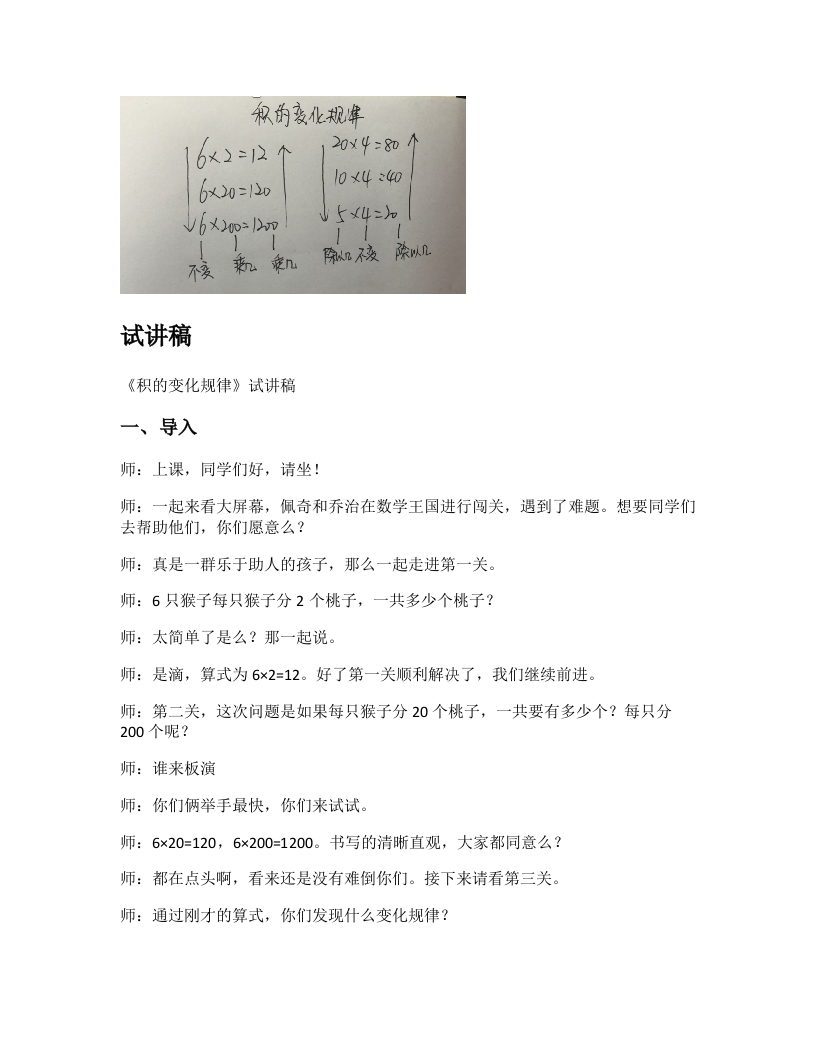 积的变化规律
6×2=12
6×20=120
6×200=1200
不变 乘几 乘几
20×4=80
10×4=40
5×4=20
除以几 不变 除以几
试讲稿
《积的变化规律》试讲稿
一、导入
师：上课，同学们好，请坐！
师：一起来看大屏幕，佩奇和乔治在数学王国进行闯关，遇到了难题。想要同学们
去帮助他们，你们愿意么？
师：真是一群乐于助人的孩子，那么一起走进第一关。
师：6 只猴子每只猴子分 2 个桃子，一共多少个桃子？
师：太简单了是么？那一起说。
师：是滴，算式为 6×2=12。好了第一关顺利解决了，我们继续前进。
师：第二关，这次问题是如果每只猴子分 20 个桃子，一共要有多少个？每只分
200 个呢？
师：谁来板演
师：你们俩举手最快，你们来试试。
师：6×20=120，6×200=1200。书写的清晰直观，大家都同意么？
师：都在点头啊，看来还是没有难倒你们。接下来请看第三关。
师：通过刚才的算式，你们发现什么变化规律？